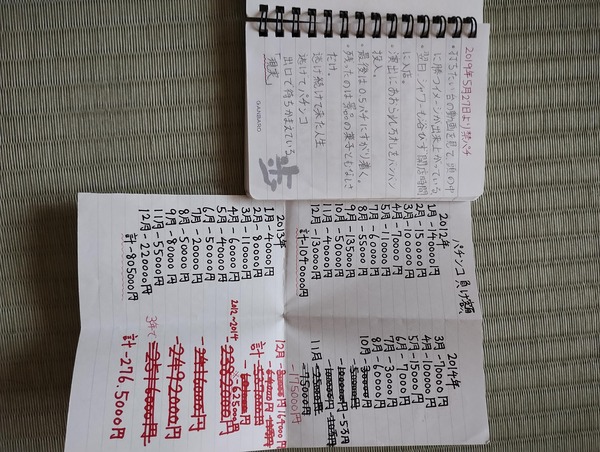 2019年5月27日より禁パチ
・打ちたい台の動画を見て頭の中
に勝つイメージが出来上がっている。
・翌日、シャワーも浴びず開店時間
に入店。
・演出にあおられ
投入。
・最後は0.5パチにすがり着く。
・残ったのは景品の菓子
だけ。
逃げ続けて来た人生
逃げ=パチンコ
出口で待ちかまえている
「現実」
歩
GANBARO
パチンコ負け額
2012年
1月-140000円
2月-150000円
3月-100000円
4月-70000円
5月-110000円
7月-60000円
8月-55000円
9月-135000円
10月-50000円
11月-40000円
12月-130000円
計-1040000円
2013年
1月-40000円
2月-80000円
3月-110000円
4月-60000円
5月-40000円
6月-50000円
7月-20000円
8月-50000円
9月-80000円
11月-55000円
12月-220000円
計-805000円
2014年
3月-70000円
4月-100000円
5月-15000円
6月-7000円
7月-30000円
8月-60000円
10月-30000円
11月
-75000円
-175000円
12月
164000円
計
-625000円
2012~2014
3年で
計-2765000円